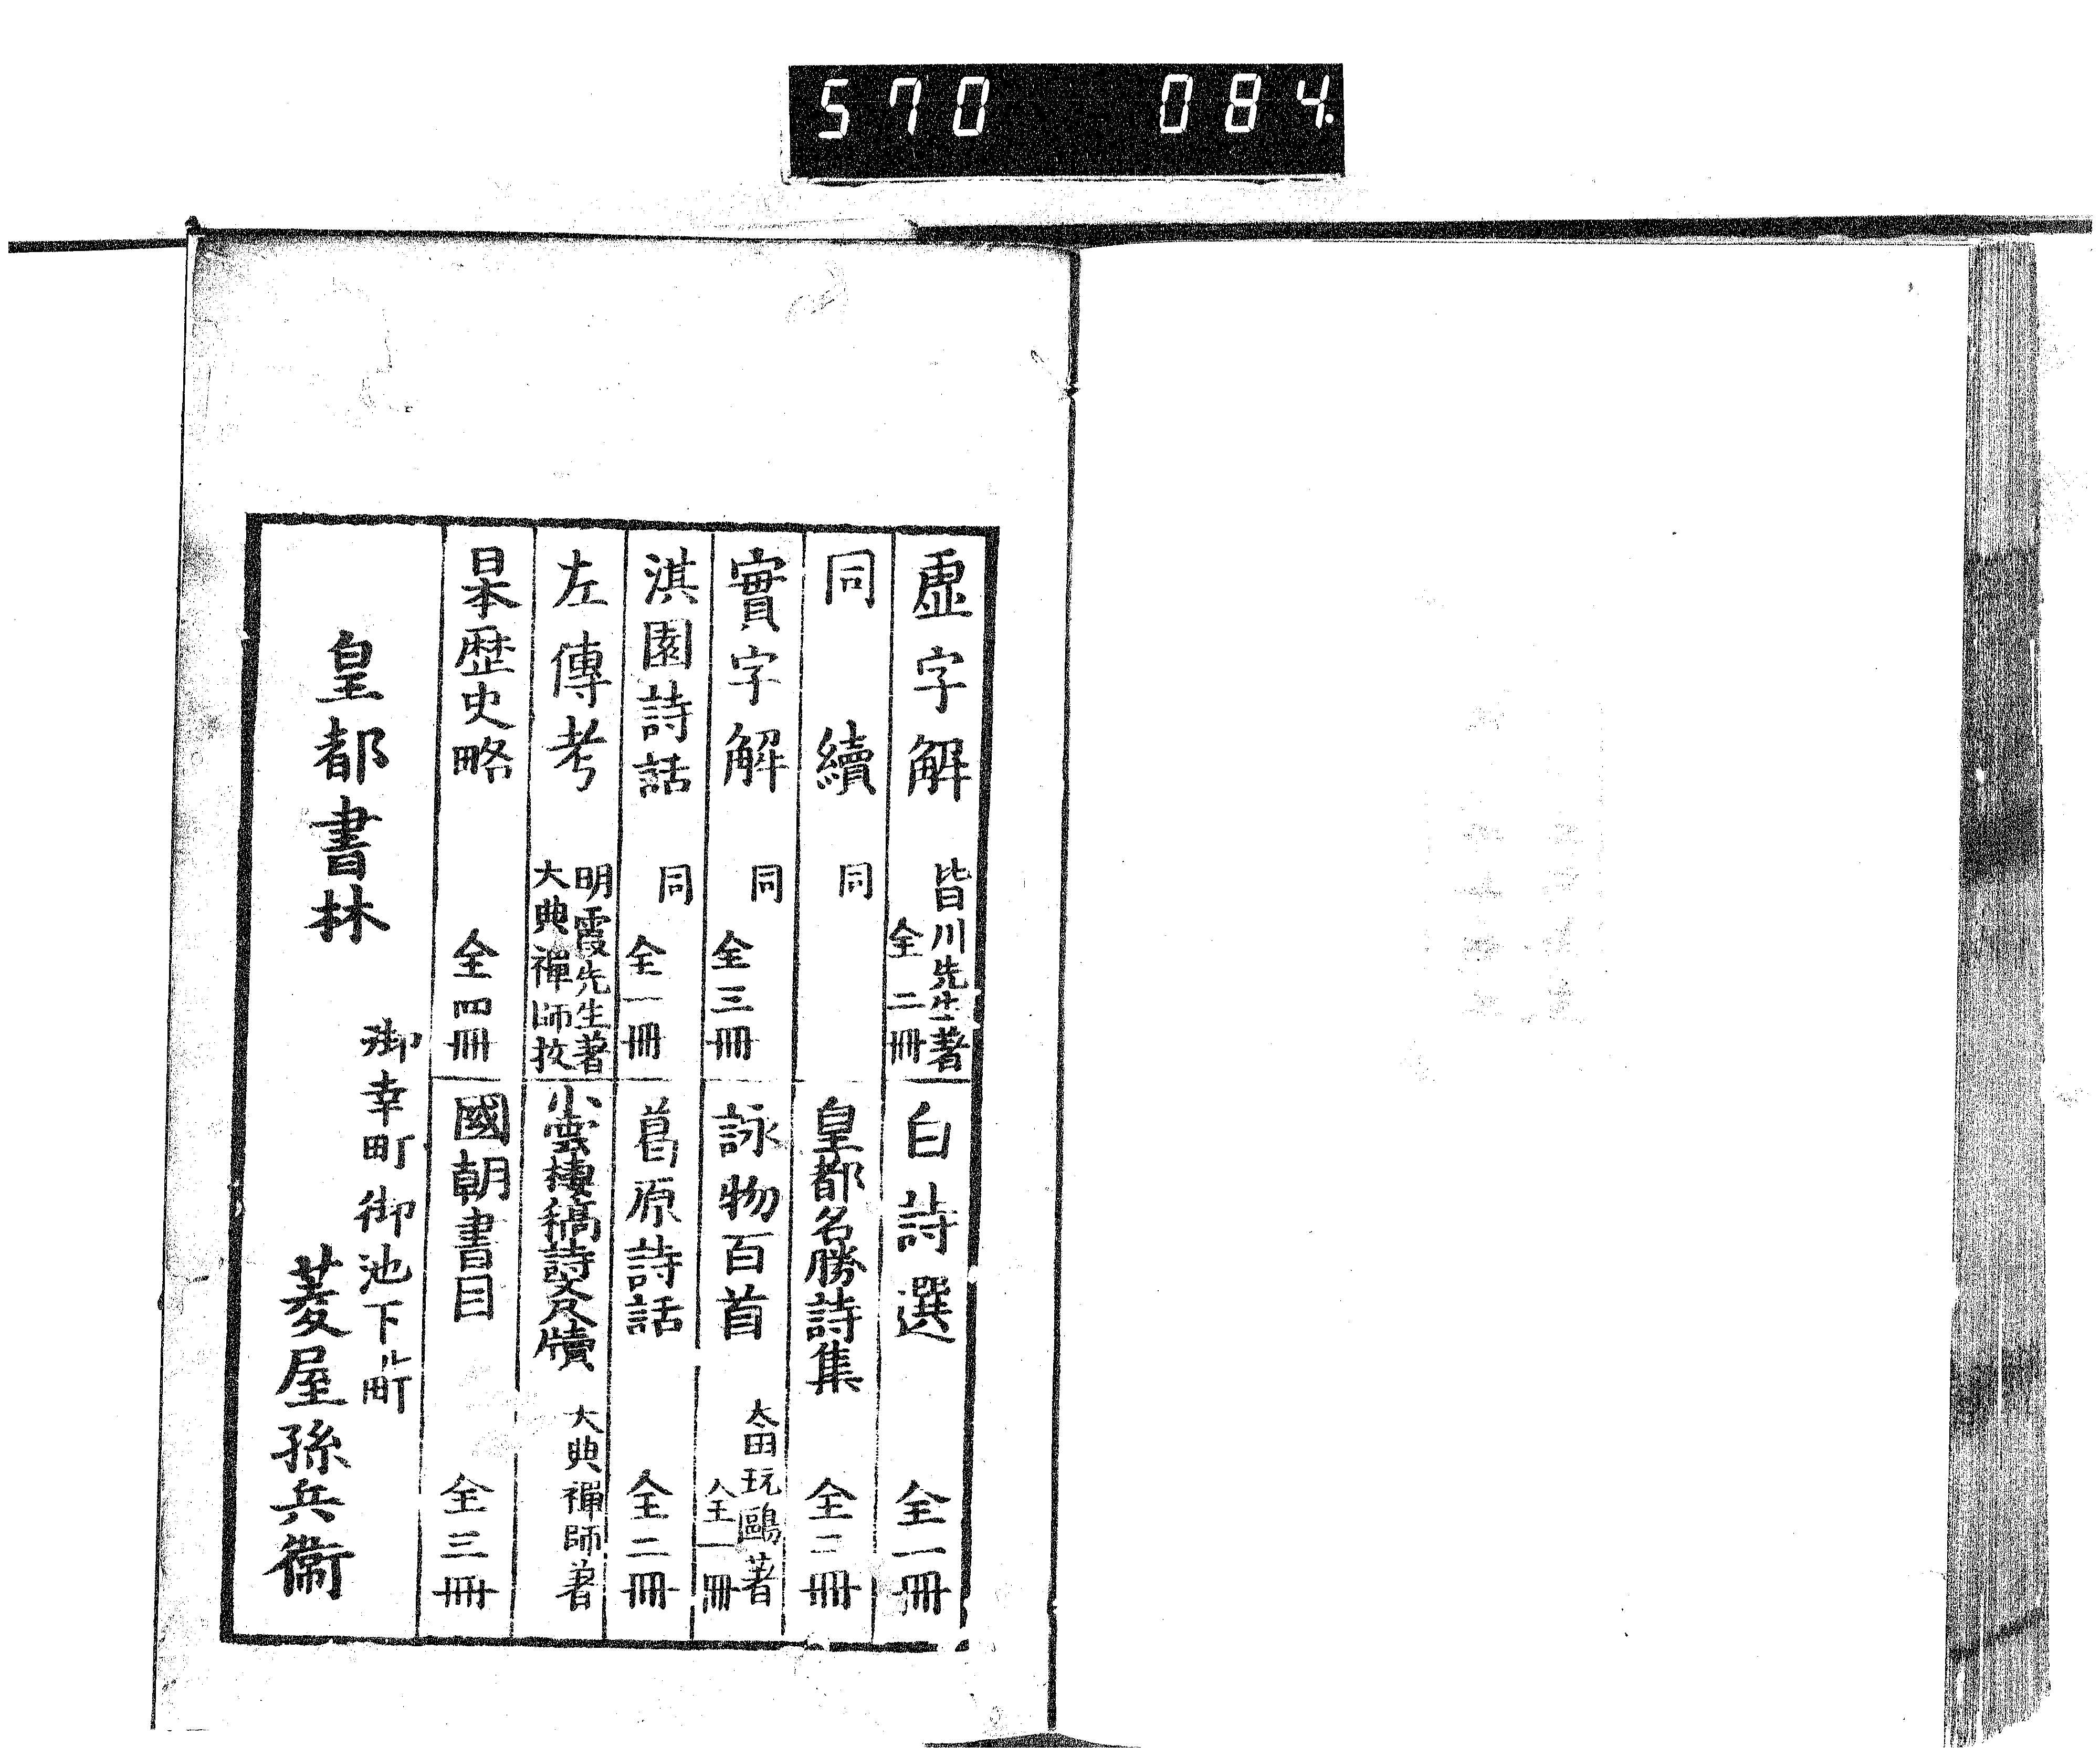 570 084.
虛字解 皆川先生著 全二冊
白詩選 全一冊
同續 同
皇都名勝詩集 全二冊
實字解 同 全三冊
詠物百首 太田玩鷗著 全一冊
淇園詩話 同 全一冊
葛原詩話 全二冊
左傳考 明霞先生著 大典禪師挍
小雲棲稿詩文及牘 大典禪師著
日本歷史略 全四冊
國朝書目 全三冊
皇都書林
御幸町御池下ル町
菱屋孫兵衞